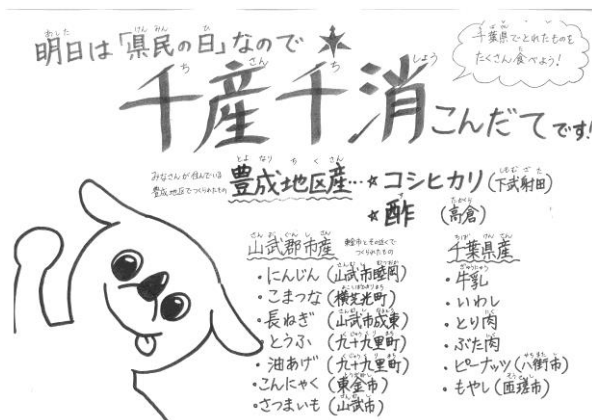 明日は「県民の日」なので
千葉県でとれたものを
たくさん食べよう!
千産千消こんだてです!
みなさんが住んでいる
豊成地区でつくられたもの
豊成地区産…★コシヒカリ(下武射田)
★酢 (高倉)
山武郡市産 東金市とその近くで
つくられたもの
・にんじん(山武市睦岡)
・こまつな(横芝光町)
・長ねぎ(山武市成東)
・とうふ(九十九里町)
・油あげ(九十九里町)
・こんにゃく(東金市)
・さつまいも(山武市)
千葉県産
・牛乳
・いわし
・とり肉
・ぶた肉
・ピーナッツ(八街市)
・もやし(匝瑳市)